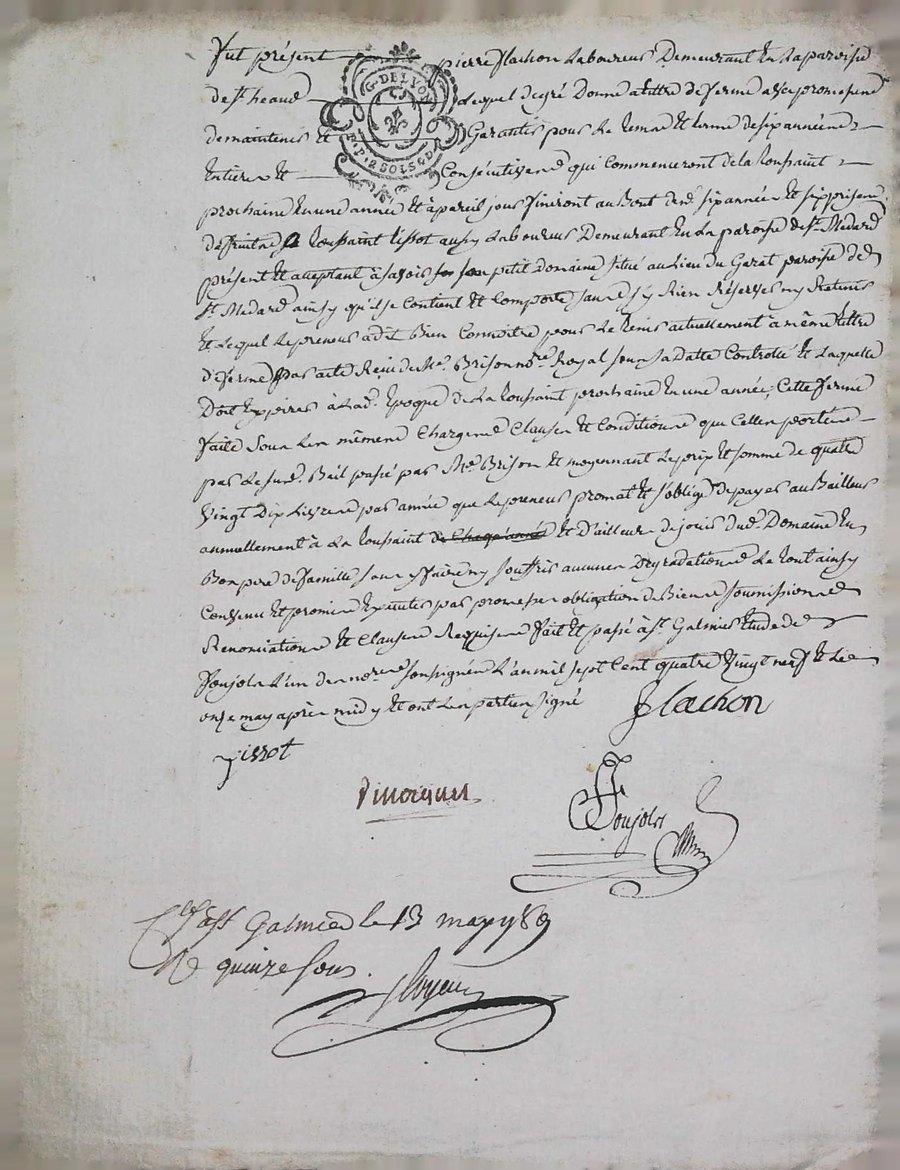 Fut présent pierre flachon Laboureur Demeurant En La paroisse
de St. heand Lequel degré Donne a titre de ferme avec promesse
de maintenir et Garantir pour le tems et terme de six années
Entiere et Consécutives qui Commenceront de la toussaint
prochaine En une année Et à pareil jour finiront au Bout desd. six années Et six prises
de fruits à toussaint tissot aussy Laboureur Demeurant En La paroisse de St. Medard
présent Et acceptant à Savoir son petit Domaine situé au Lieu du Gazat paroisse de
St. Medard ainsy qu'il se Contient Et Comporte sans s'y Rien Réserver ny Retenir
Et Lequel Le preneur a dit Bien Connoitre pour Le tenir actuellement à même titre
de ferme par acte Reçu de Me. Brison nore. Royal sous sa Datte Controlé Et Laquelle
Doit Expirer à Lad. Epoque de La toussaint prochaine En une année; Cette ferme
faite Sous Les mêmes Charges Clauses Et Conditions que Celles portées
par Le susd. Bail passé par Me. Brison Et moyennant Le prix Et somme de quatre
Vingt Dix Livres par année que Le preneur promet Et s'oblige de payer au Bailleur
annuellement à La toussaint de Chaque année Et D'ailleurs de jouir dud. Domaine En
Bon pere de famille sans y faire ny souffrir aucunes Dégradations Le tout ainsy
Convenu Et promis Executer par promesses obligation de Biens soumissions
Renonciations Et Clauses Requises fait Et passé à St. Galmier Etude de
foujols L'un des nores. soussignés L'an mil sept Cent quatre Vingt neuf Et Le
onze may après midy Et ont Les parties signé
flachon
tissot
foujols
a St Galmier le 13 may 89
R quinze sous